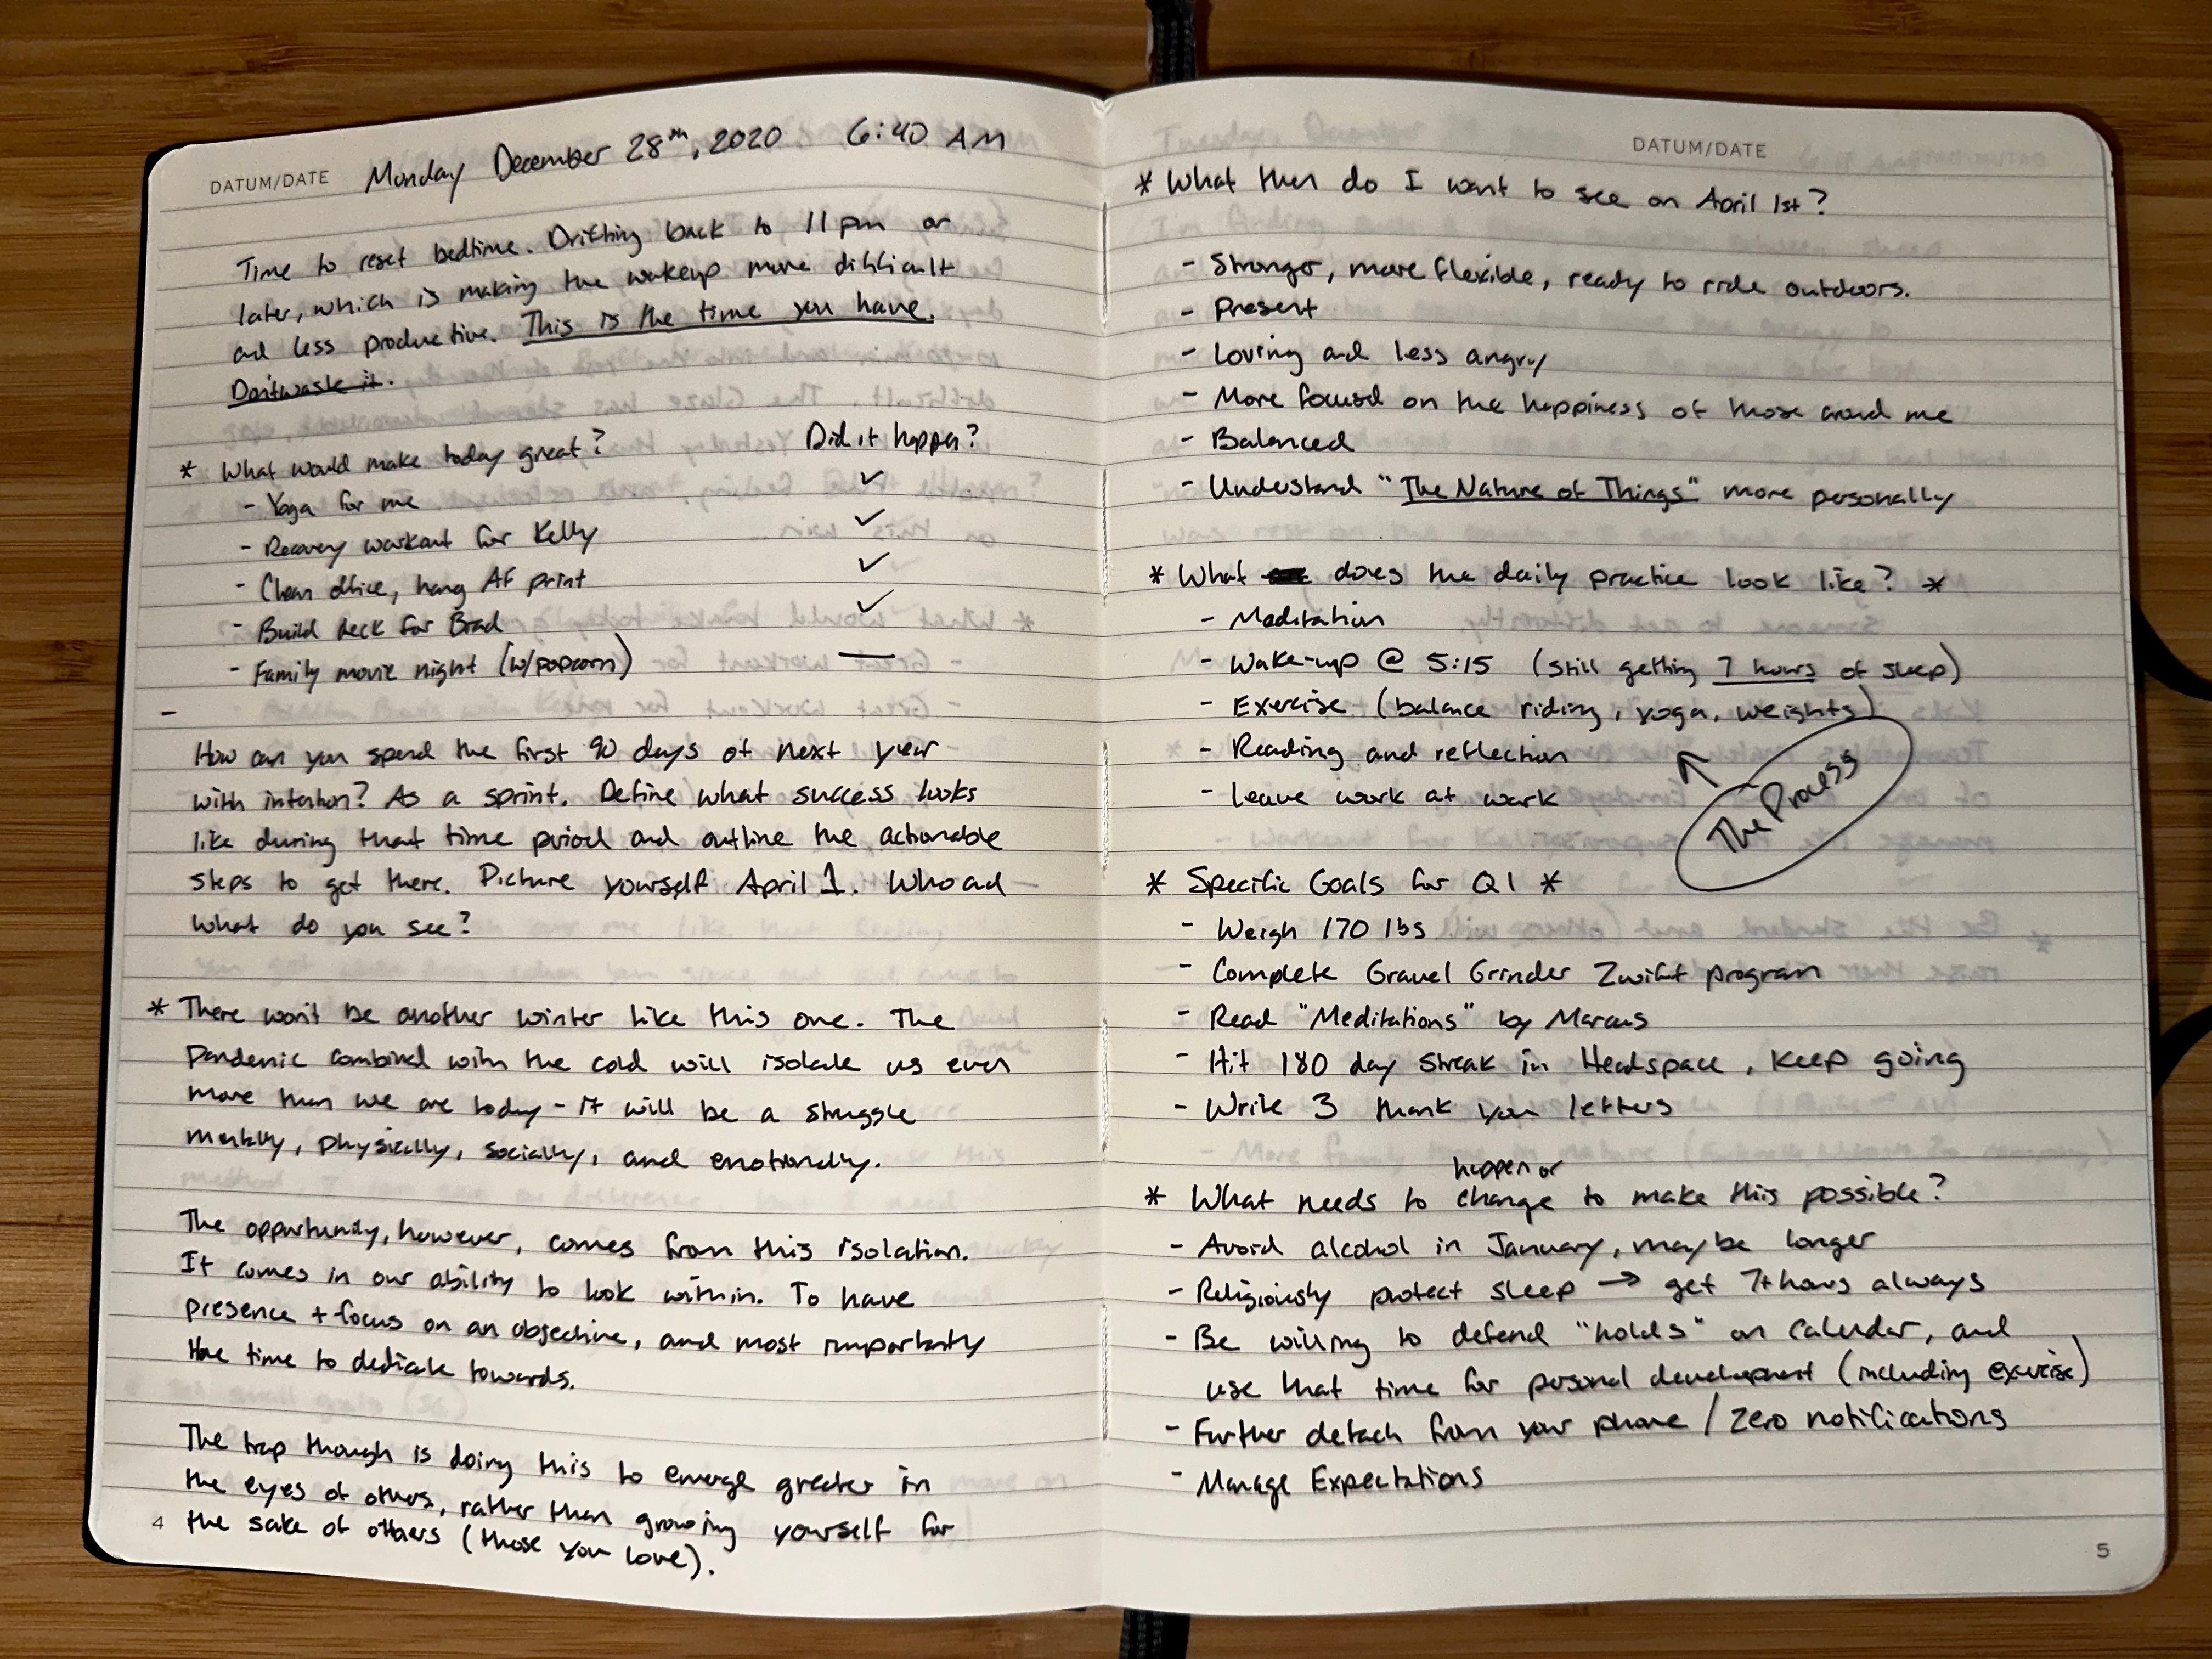 DATUM/DATE Monday December 28th, 2020 6:40 AM
Time to reset bedtime. Drifting back to 11pm or
later, which is making the wakeup more difficult
and less productive. This is the time you have.
Don't waste it.
* What would make today great? Did it happen?
- Yoga for me ✓
- Recovery workout for Kelly ✓
- Clean office, hang AF print ✓
- Build deck for Brad ✓
- Family movie night (w/popcorn) —
-
How can you spend the first 90 days of next year
with intention? As a sprint. Define what success looks
like during that time period and outline the actionable
steps to get there. Picture yourself April 1. Who and
what do you see?
* There won't be another winter like this one. The
pandemic combined with the cold will isolate us even
more than we are today - it will be a struggle
mentally, physically, socially, and emotionally.
The opportunity, however, comes from this isolation.
It comes in our ability to look within. To have
presence + focus on an objective, and most importantly
the time to dedicate towards.
The trap though is doing this to emerge greater in
the eyes of others, rather than growing yourself for
the sake of others (those you love).
4
DATUM/DATE
* What then do I want to see on April 1st?
- Stronger, more flexible, ready to ride outdoors.
- Present
- Loving and less angry
- More focused on the happiness of those around me
- Balanced
- Understand "The Nature of Things" more personally
* What does the daily practice look like? *
- Meditation
- Wake-up @ 5:15 (still getting 7 hours of sleep)
- Exercise (balance riding, yoga, weights)
- Reading and reflection
- Leave work at work
↑ The Process
* Specific Goals for Q1 *
- Weigh 170 lbs
- Complete Gravel Grinder Zwift program
- Read "Meditations" by Marcus
- Hit 180 day streak in Headspace, keep going
- Write 3 thank you letters
happen or
* What needs to change to make this possible?
- Avoid alcohol in January, maybe longer
- Religiously protect sleep → get 7+ hours always
- Be willing to defend "holds" on calendar, and
use that time for personal development (including exercise)
- Further detach from your phone / zero notifications
- Manage Expectations
5